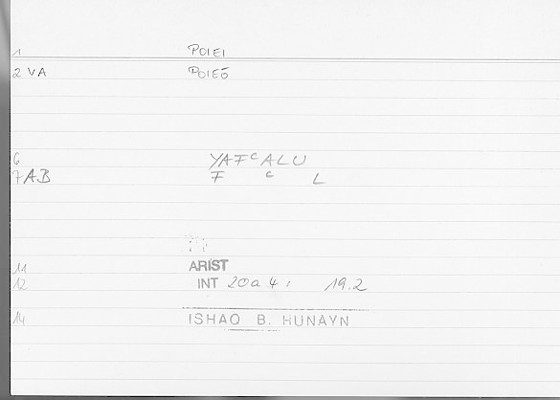 1 POIEI
2 VA POIEŌ
6 YAFᶜALU
7 AB F ᶜ L
11 ARIST
12 INT 20a 4: 19.2
14 ISHAQ B. HUNAYN